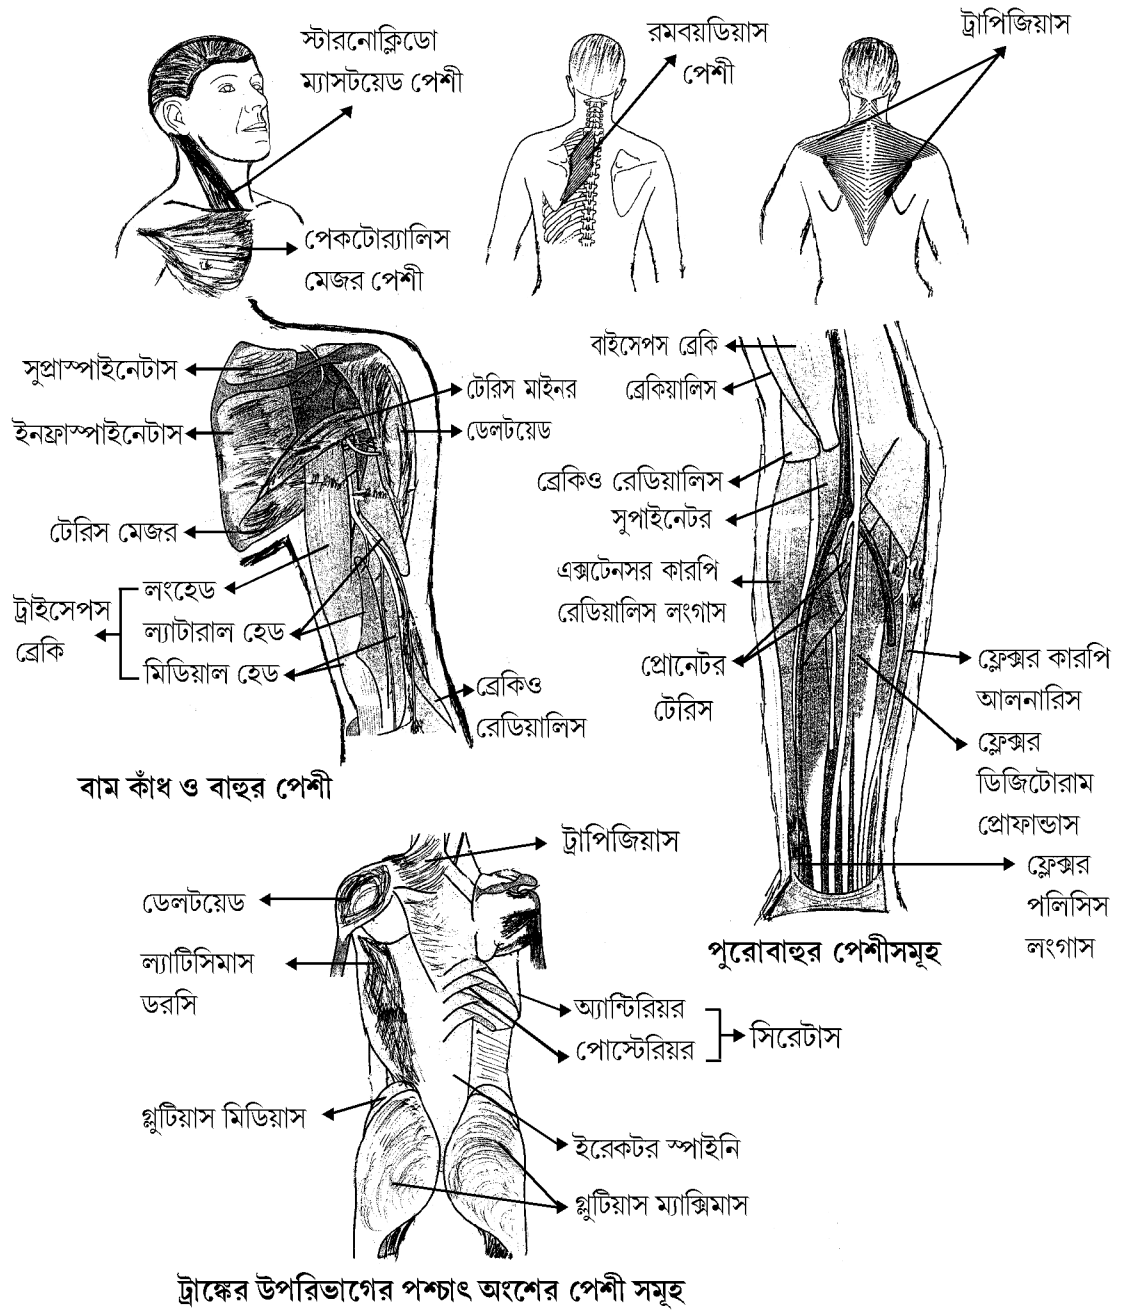 স্টারনোক্লিডো
ম্যাসটয়েড পেশী
পেকটোর‍্যালিস
মেজর পেশী
রমবয়ডিয়াস
পেশী
ট্রাপিজিয়াস
সুপ্রাস্পাইনেটাস
ইনফ্রাস্পাইনেটাস
টেরিস মেজর
ট্রাইসেপস
ব্রেকি
লংহেড
ল্যাটারাল হেড
মিডিয়াল হেড
টেরিস মাইনর
ডেলটয়েড
ব্রেকিও
রেডিয়ালিস
বাম কাঁধ ও বাহুর পেশী
বাইসেপস ব্রেকি
ব্রেকিয়ালিস
ব্রেকিও রেডিয়ালিস
সুপাইনেটর
এক্সটেনসর কারপি
রেডিয়ালিস লংগাস
প্রোনেটর
টেরিস
ফ্লেক্সর কারপি
আলনারিস
ফ্লেক্সর
ডিজিটোরাম
প্রোফান্ডাস
ফ্লেক্সর
পলিসিস
লংগাস
পুরোবাহুর পেশীসমূহ
ট্রাপিজিয়াস
ডেলটয়েড
ল্যাটিসিমাস
ডরসি
অ্যান্টিরিয়র
পোস্টেরিয়র
সিরেটাস
গ্লুটিয়াস মিডিয়াস
ইরেকটর স্পাইনি
গ্লুটিয়াস ম্যাক্সিমাস
ট্রাঙ্কের উপরিভাগের পশ্চাৎ অংশের পেশী সমূহ